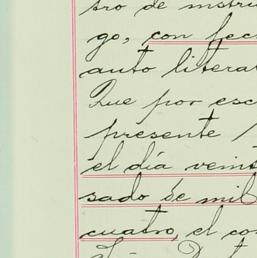 tro de instru
go, con fec
auto literal
Que por esc
presente
el día veint
sado de mil
cuatro, el co